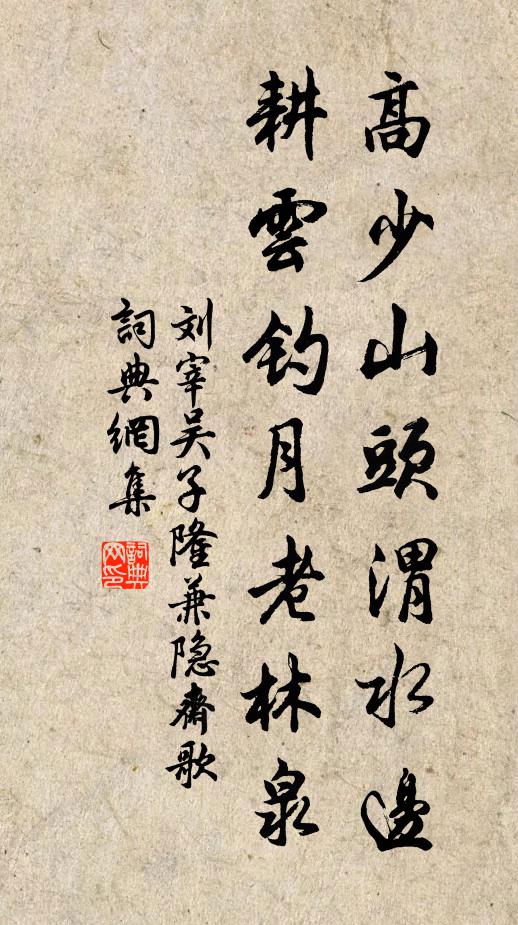 高少山頭渭水邊
耕雲釣月老林泉
刘宰吴子隆兼隐齋歌
詞典網集
詞典網印